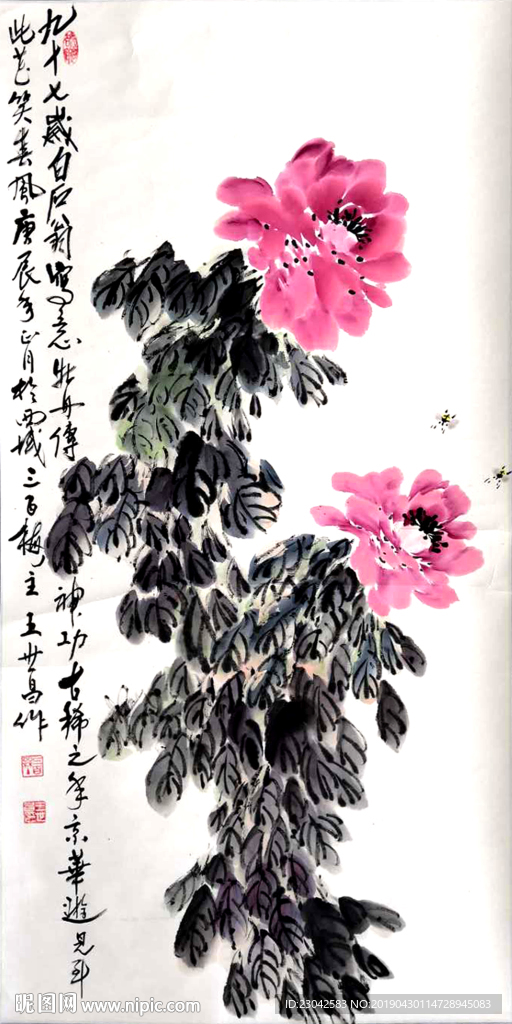 九十七歲白石翁寫意牡丹傳神功古稀之年京華遊見到
此花笑春風庚辰年正月於西城三百梅主王世昌作
昵图网 www.nipic.com
ID:23042583 NO:20190430114728945083